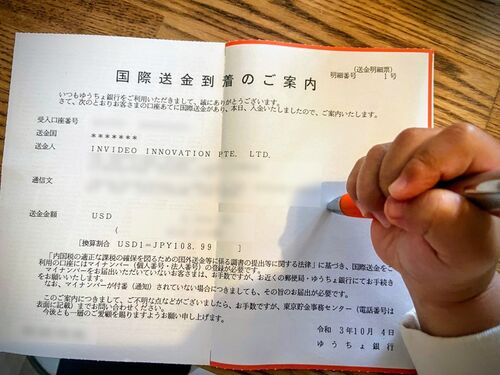 (送金明細票)
明細番号 1号
国際送金到着のご案内
いつもゆうちょ銀行をご利用いただきまして、誠にありがとうございます。
さて、次のとおりお客さまの口座あてに国際送金があり、本日、入金いたしましたので、ご案内いたします。
受入口座番号
送金国 *******
送金人 INVIDEO INNOVATION PTE. LTD.
通信文
送金金額 USD
(
[換算割合 USD1=JPY108.99 ]
「内国税の適正な課税の確保を図るための国外送金等に係る調書の提出等に関する法律」に基づき、国際送金をご
利用の口座にはマイナンバー(個人番号・法人番号)の登録が必要です。
マイナンバーをお届けいただいていないお客さまは、お手数ですが、お近くの郵便局・ゆうちょ銀行にてお手続き
をお願いいたします。
なお、マイナンバーが付番(通知)されていない場合につきましても、その旨のお届出が必要です。
このご案内につきまして、ご不明な点などがございましたら、お手数ですが、東京貯金事務センター(電話番号は
表面に記載)までお問い合わせください。
今後とも一層のご愛顧を賜りますようお願い申し上げます。
令和 3年10月 4日
ゆうちょ銀行